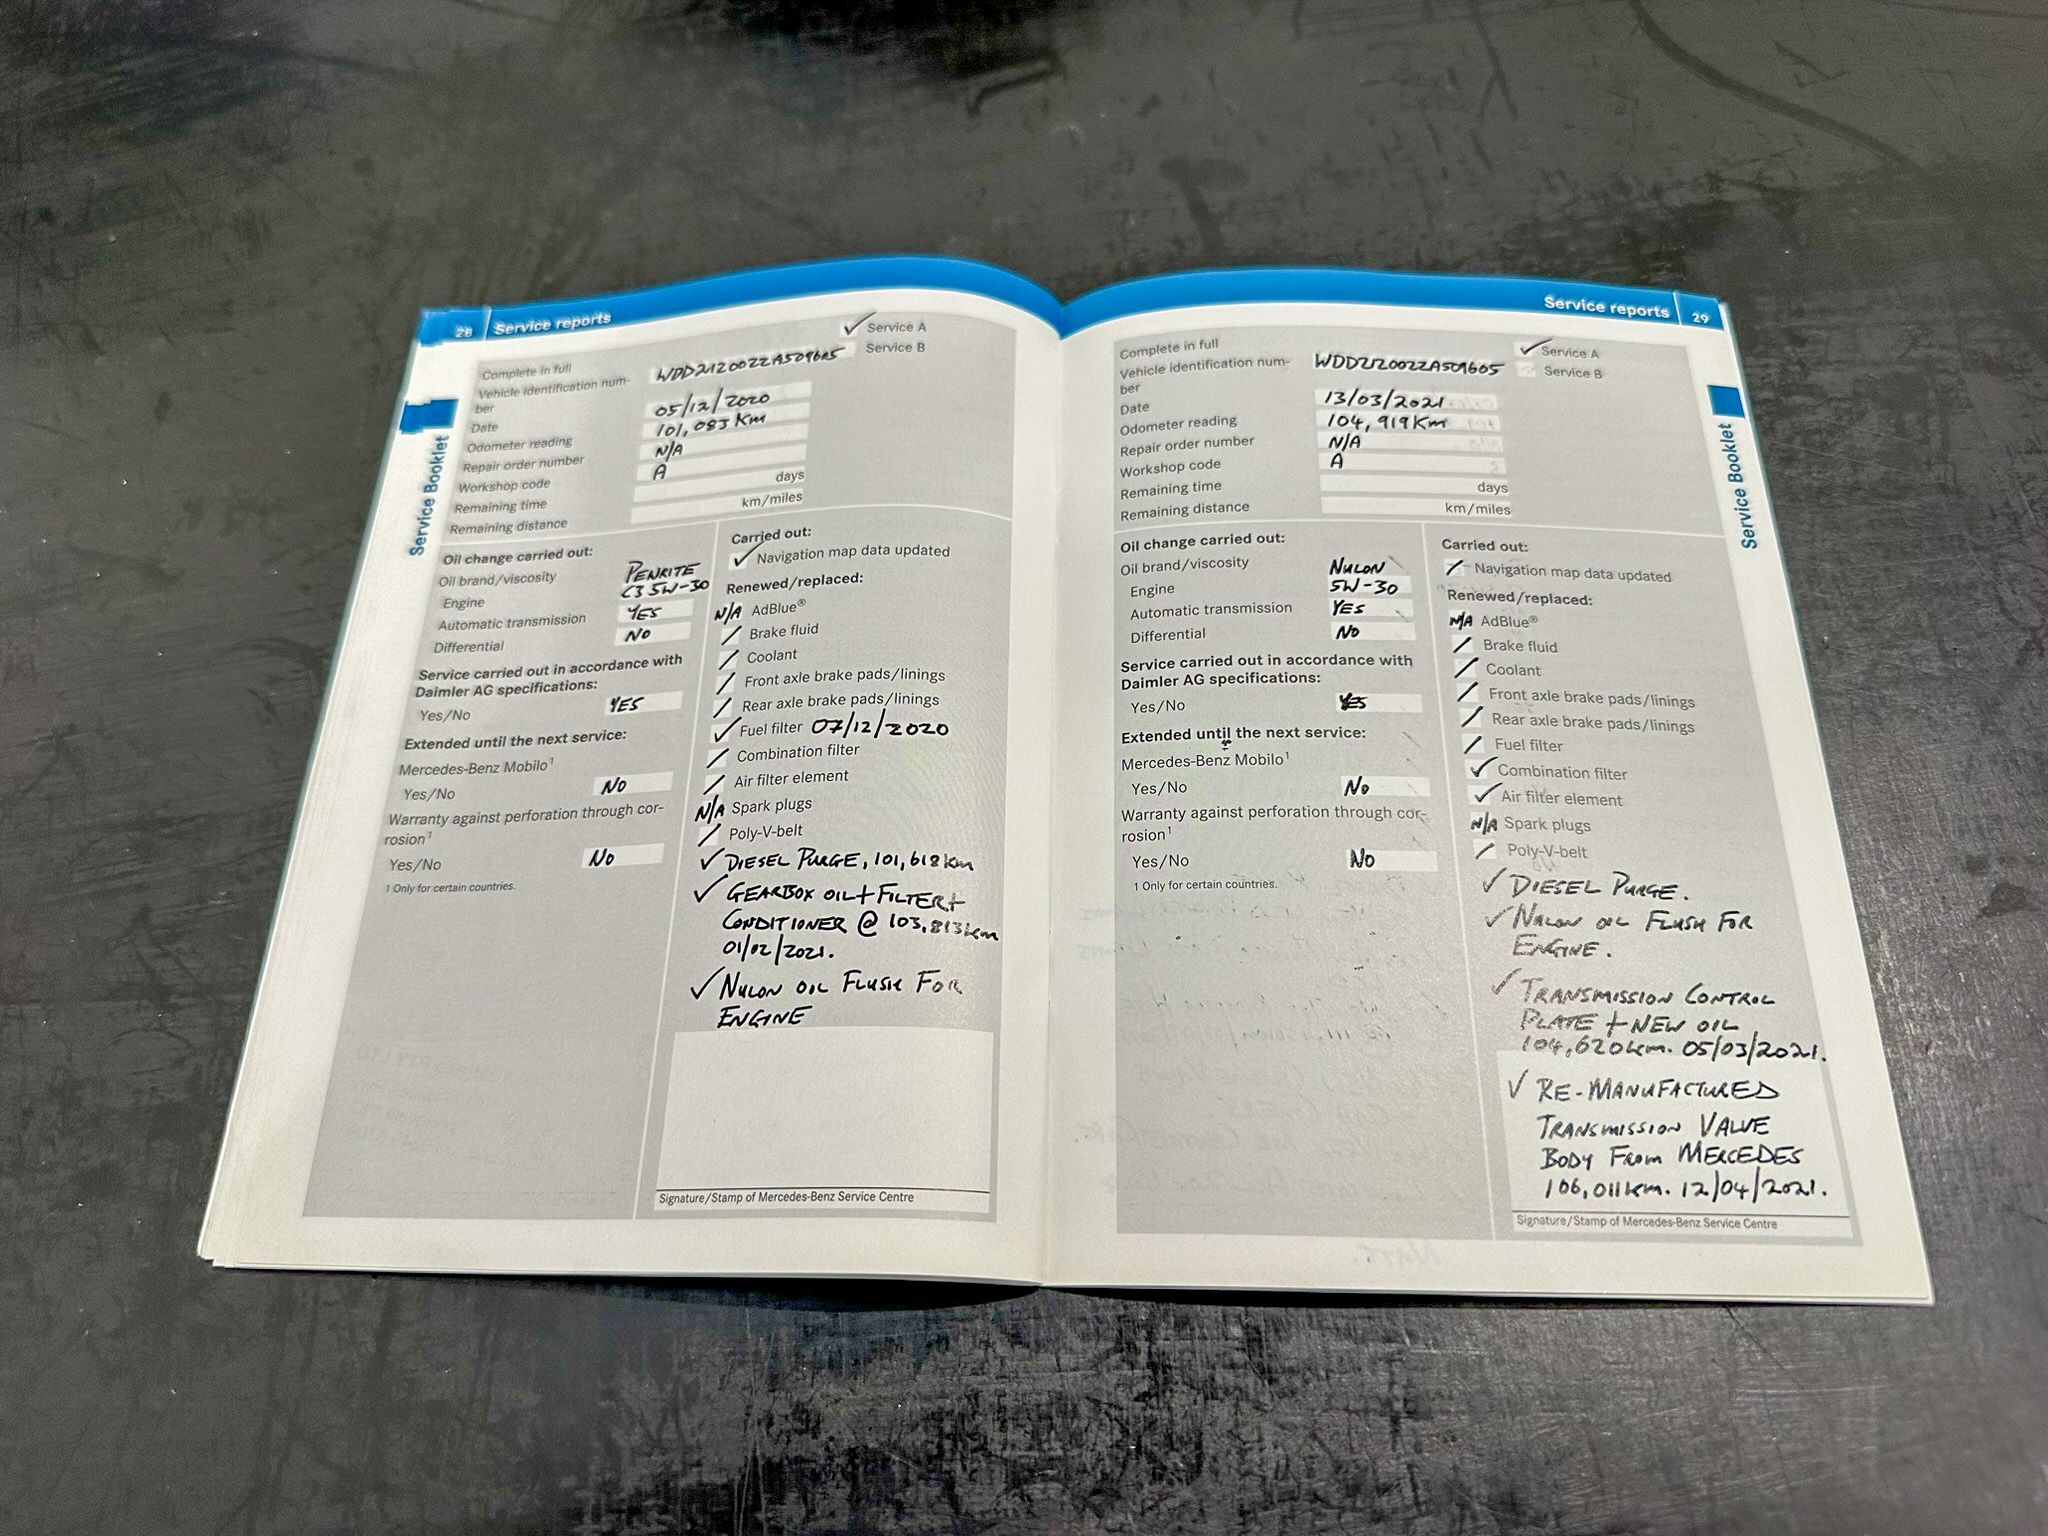 28 Service reports
Complete in full
✓ Service A
Service B
Vehicle identification num-
ber
WDD2120022A509605
Date
05/12/2020
Odometer reading
101,083 Km
Repair order number
N/A
Workshop code
A
Remaining time
days
Remaining distance
km/miles
Service Booklet
Oil change carried out:
Oil brand/viscosity
PENRITE
Engine
C3 5W-30
Automatic transmission
YES
Differential
NO
Service carried out in accordance with
Daimler AG specifications:
Yes/No
YES
Extended until the next service:
Mercedes-Benz Mobilo¹
Yes/No
NO
Warranty against perforation through cor-
rosion¹
Yes/No
NO
1 Only for certain countries.
Carried out:
✓ Navigation map data updated
Renewed/replaced:
N/A AdBlue®
/ Brake fluid
/ Coolant
/ Front axle brake pads/linings
/ Rear axle brake pads/linings
✓ Fuel filter 07/12/2020
/ Combination filter
/ Air filter element
N/A Spark plugs
/ Poly-V-belt
✓ DIESEL PURGE, 101,618km
✓ GEARBOX OIL + FILTER +
CONDITIONER @ 103,813km
01/02/2021.
✓ NULON OIL FLUSH FOR
ENGINE
Signature/Stamp of Mercedes-Benz Service Centre
Service reports 29
Complete in full
✓ Service A
Service B
Vehicle identification num-
ber
WDD2120022A509605
Date
13/03/2021
Odometer reading
104,919 Km
Repair order number
N/A
Workshop code
A
Remaining time
days
Remaining distance
km/miles
Service Booklet
Oil change carried out:
Oil brand/viscosity
NULON
Engine
5W-30
Automatic transmission
YES
Differential
NO
Service carried out in accordance with
Daimler AG specifications:
Yes/No
YES
Extended until the next service:
Mercedes-Benz Mobilo¹
Yes/No
NO
Warranty against perforation through cor-
rosion¹
Yes/No
NO
1 Only for certain countries.
Carried out:
/ Navigation map data updated
Renewed/replaced:
N/A AdBlue®
/ Brake fluid
/ Coolant
/ Front axle brake pads/linings
/ Rear axle brake pads/linings
/ Fuel filter
✓ Combination filter
✓ Air filter element
N/A Spark plugs
/ Poly-V-belt
✓ DIESEL PURGE.
✓ NULON OIL FLUSH FOR
ENGINE.
✓ TRANSMISSION CONTROL
PLATE + NEW OIL
104,620km. 05/03/2021.
✓ RE-MANUFACTURED
TRANSMISSION VALVE
BODY FROM MERCEDES
106,011km. 12/04/2021.
Signature/Stamp of Mercedes-Benz Service Centre